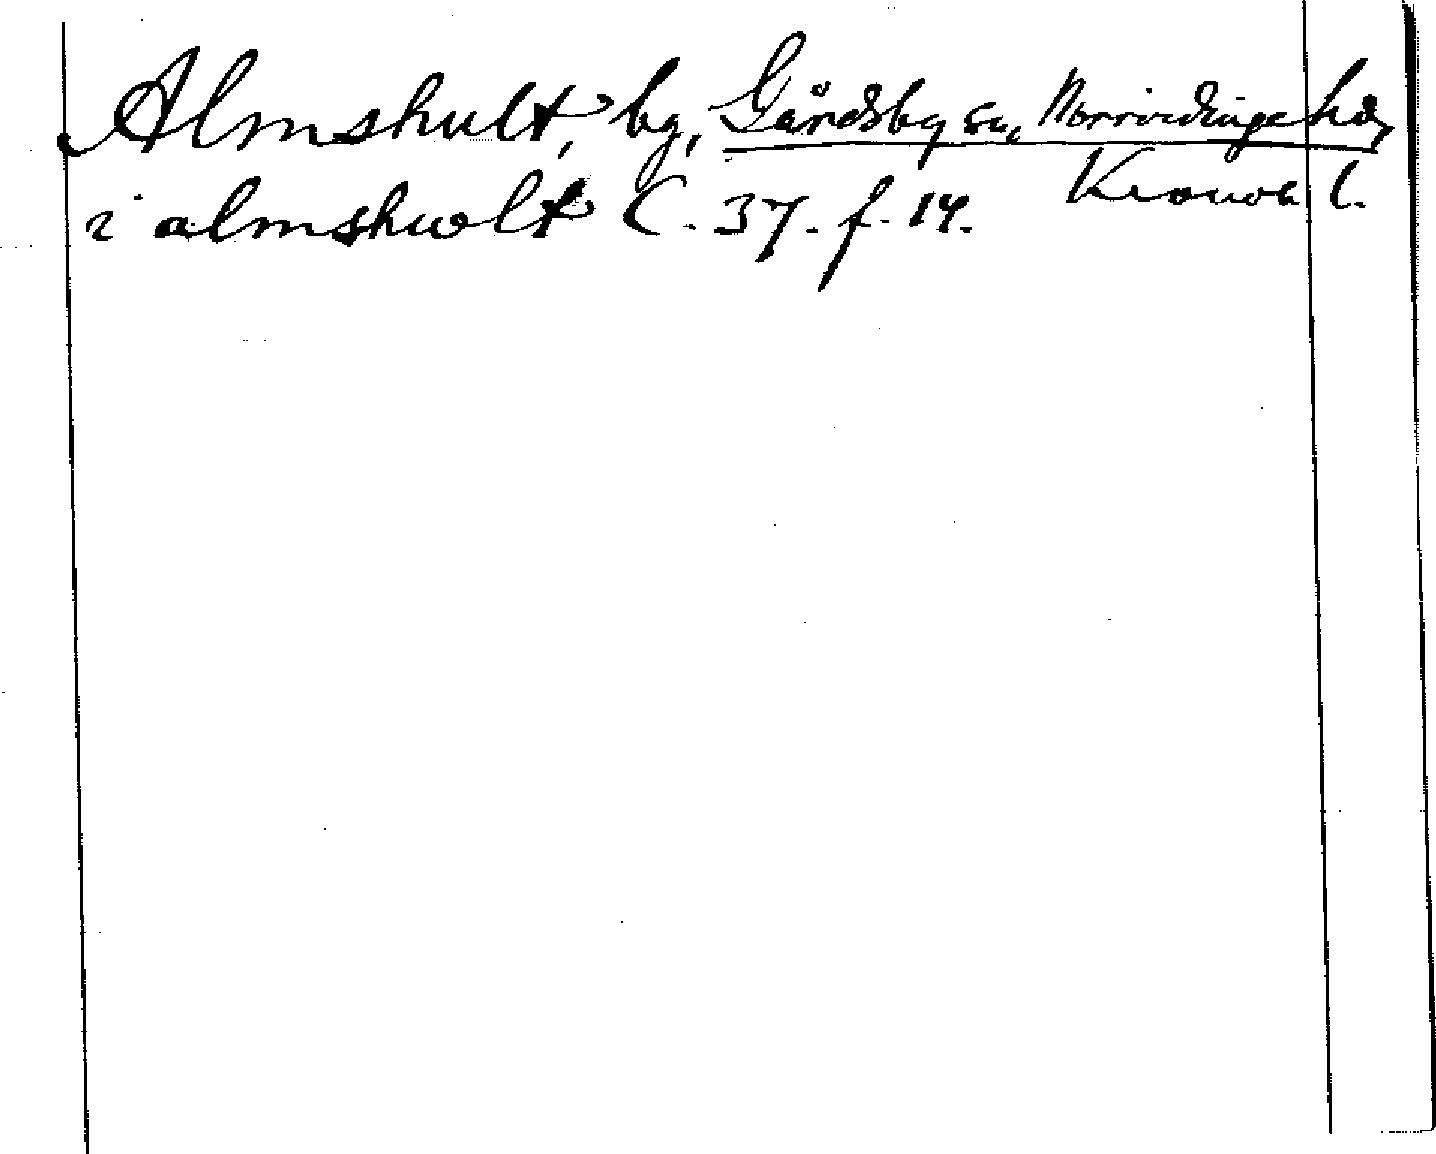 Almshult, by, Gårdsby sn, Norrvidinge hd,
Kronob. l.
i almshwlt C. 37. f. 14.